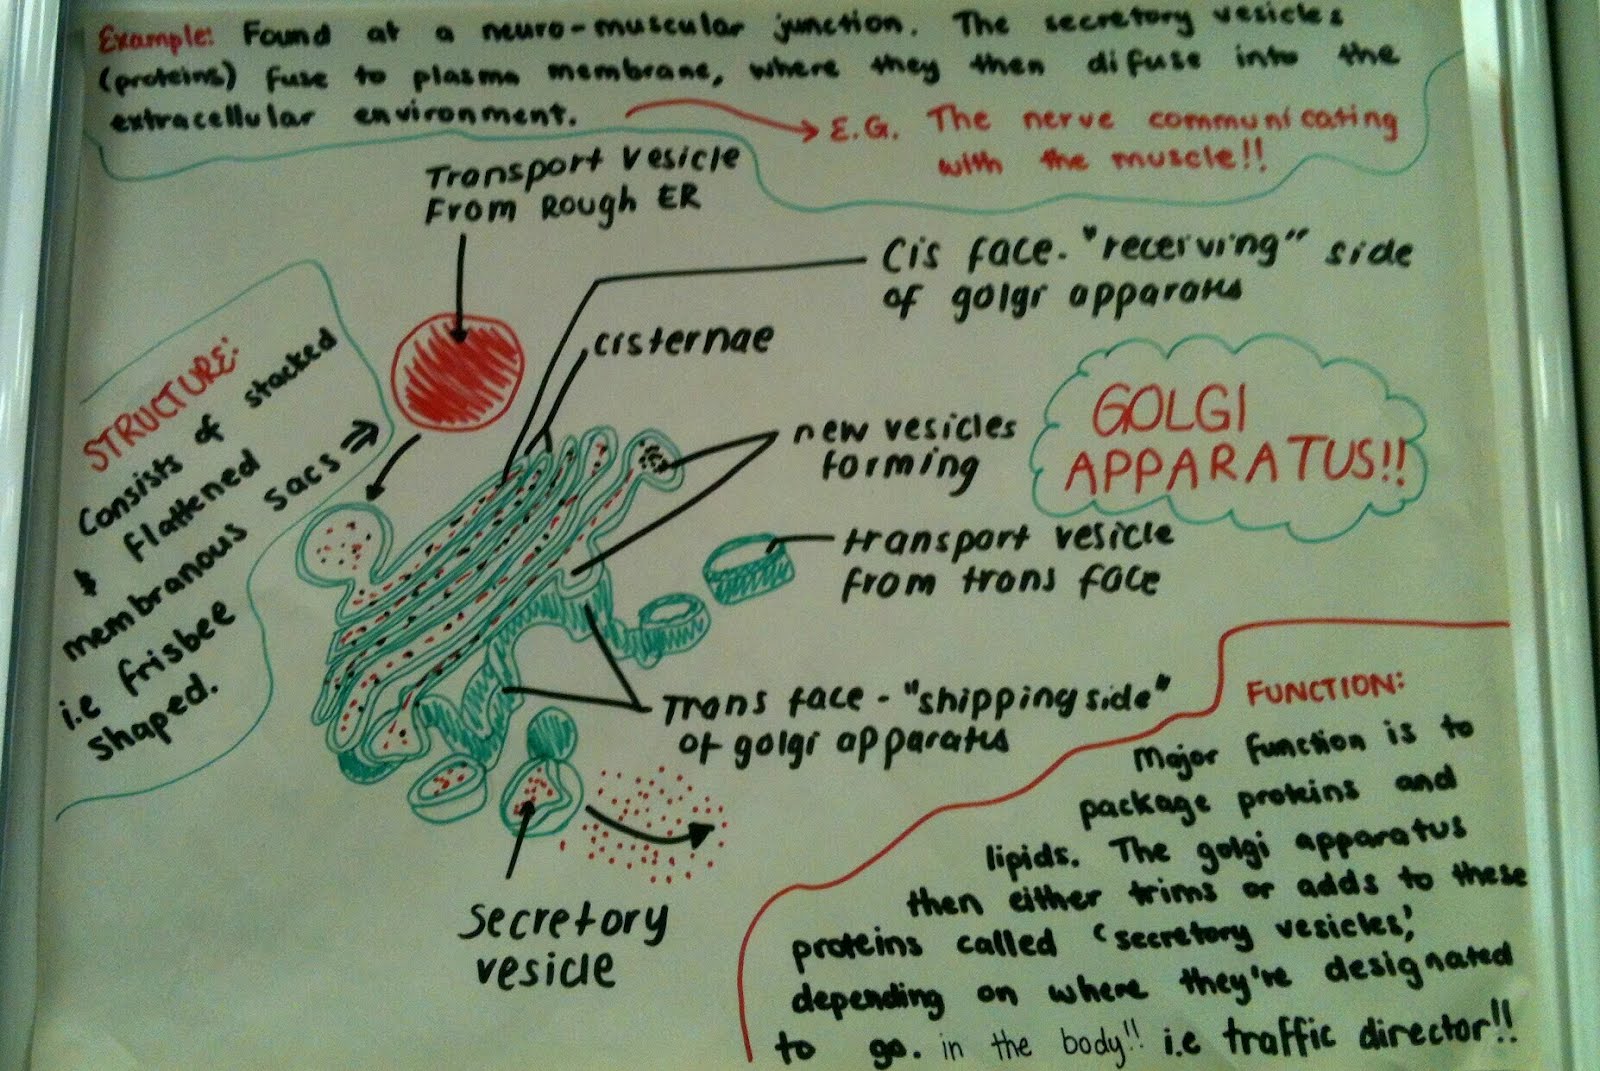 Example: Found at a neuro-muscular junction. The secretory vesicles
(proteins) fuse to plasma membrane, where they then difuse into the
extracellular environment.
E.G. The nerve communicating
with the muscle!!
Transport vesicle
From Rough ER
Cis face - "receiving" side
of golgi apparatus
cisternae
STRUCTURE:
Consists of stacked
& flattened
membranous sacs ⇒
i.e frisbee
shaped.
new vesicles
forming
GOLGI
APPARATUS!!
transport vesicle
from trans face
Trans face - "shipping side"
of golgi apparatus
secretory
vesicle
FUNCTION:
Major function is to
package proteins and
lipids. The golgi apparatus
then either trims or adds to these
proteins called 'secretory vesicles,'
depending on where they're designated
to go. in the body!! i.e traffic director!!